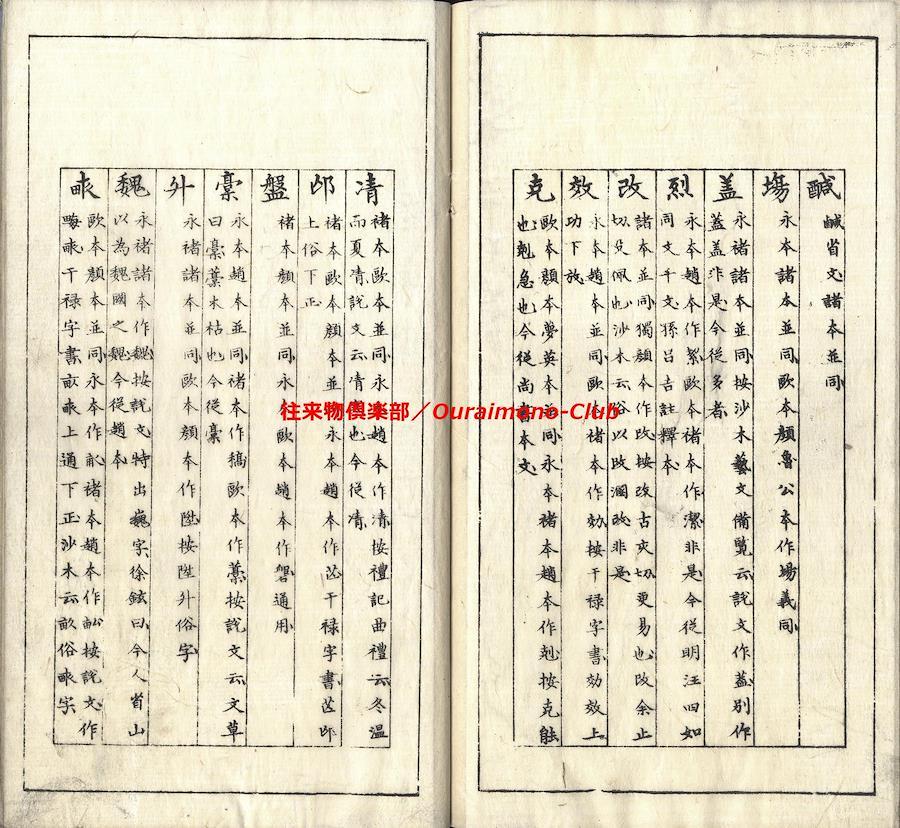 鹹
鹹省文諸本並同
塲
永本諸本並同歐本顏魯公本作場義同
盖
永褚諸本並同按沙木藝文備覽云說文作葢別作
蓋盖泎是今従多者
烈
永本趙本作絜歐本褚本作潔非是今従明汪四如
同文千文孫呂吉註釋本
改
諸本並同獨顏本作攺按攺古亥切更易也攺余止
切攴佩也沙木云俗以攺溷改非是
效
永本趙本並同歐本褚本作効按干禄字書効效上
功下放
克
歐本顏本夢英本並同永本褚本趙本作剋按克能
也剋急也今従尚書本文
凊
褚本歐本並同永本趙本作清按禮記曲禮云冬溫
而夏凊說文云凊寒也今従凊
邙
褚本歐本顏本並同永本趙本作芒干禄字書芒邙
上俗下正
盤
褚本顏本並同永本歐本趙本作磐通用
稾
永本趙本並同褚本作稿歐本作藁按說文云文草
曰稾藁木枯也今従稾
升
永褚諸本並同歐本顏本作陞按陞升俗字
魏
永褚諸本作魏按說文特出巍字徐鉉曰今人省山
以為魏國之魏今従趙本
畎
歐本顏本並同永本作畝褚本趙本作畆按說文作
畮畎干禄字書畝畎上通下正沙木云畝俗畎字
往来物倶楽部／Ouraimono-Club